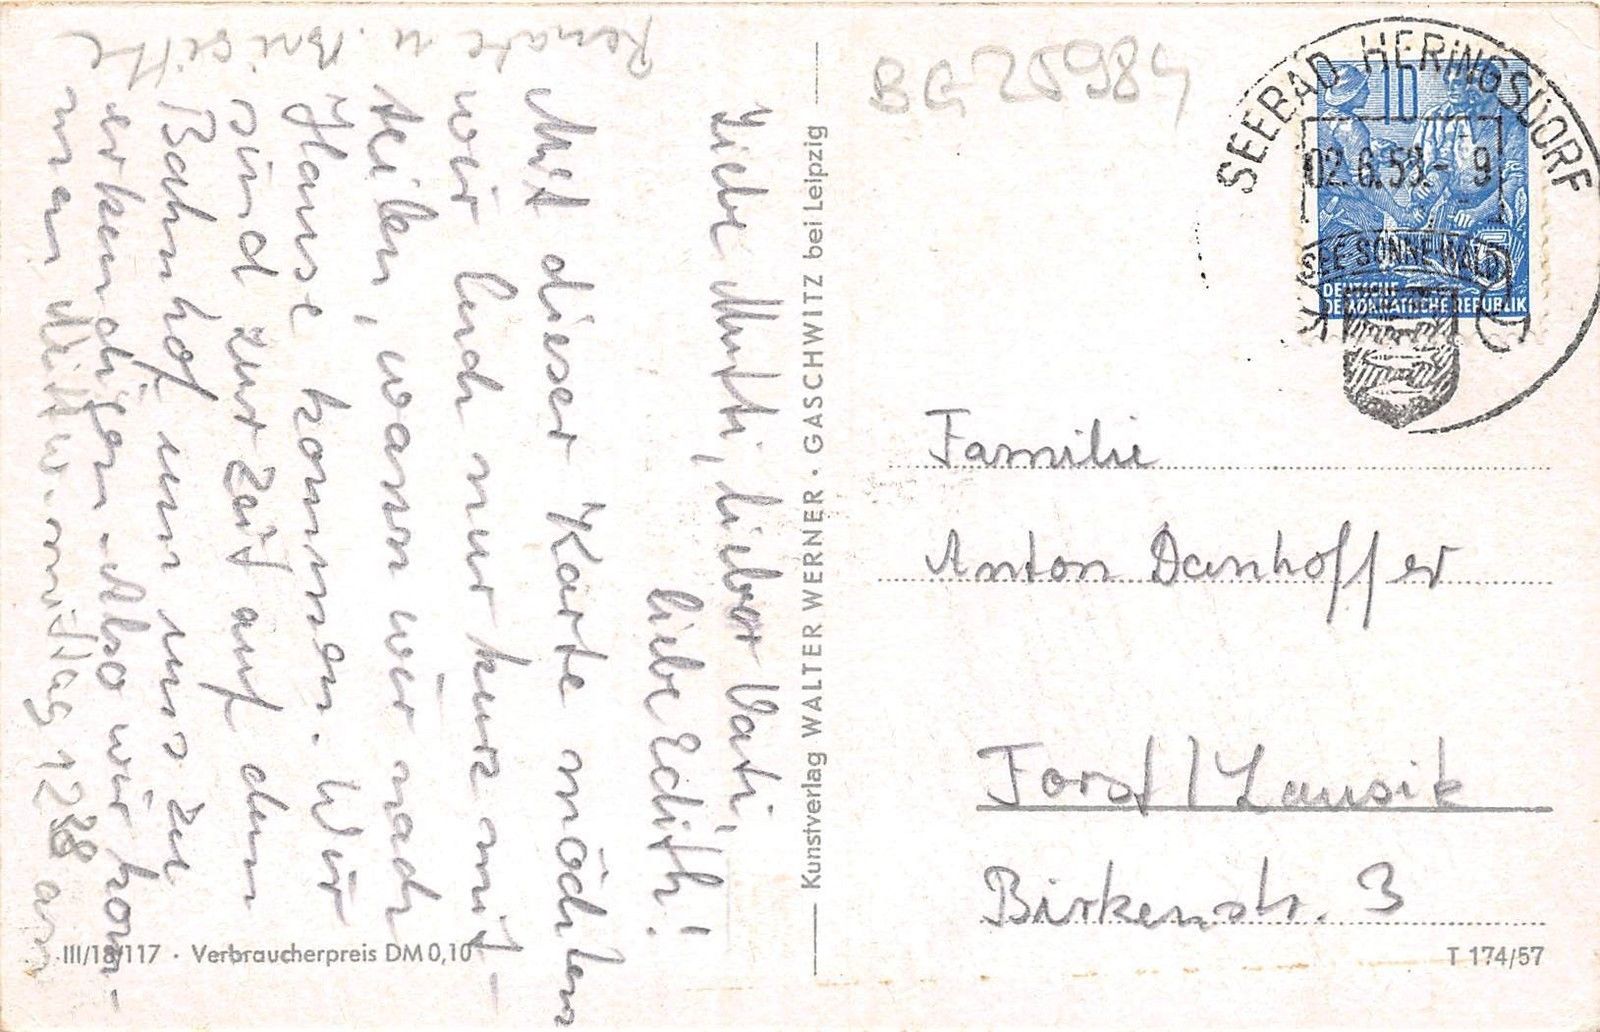 Liebe Mutti, lieber Vati,
liebe Edith!
Mit dieser Karte möchten
wir Euch nur kurz mit-
teilen, wann wir nach
Hause kommen. Wir
sind zur Zeit auf dem
Bahnhof um uns zu
erkundigen. Also wir kom-
men Mittw. mittag 12²⁸ an
Renate u. Brigitte
Kunstverlag WALTER WERNER · GASCHWITZ bei Leipzig
BG25984
SEEBAD HERINGSDORF
02.6.59.- 9
SEE SONNE WALD
10
5
DEUTSCHE
DEMOKRATISCHE REPUBLIK
Familie
Anton Danhoffer
Forst/Lausik
Birkenstr. 3
III/18/117 · Verbraucherpreis DM 0,10
T 174/57